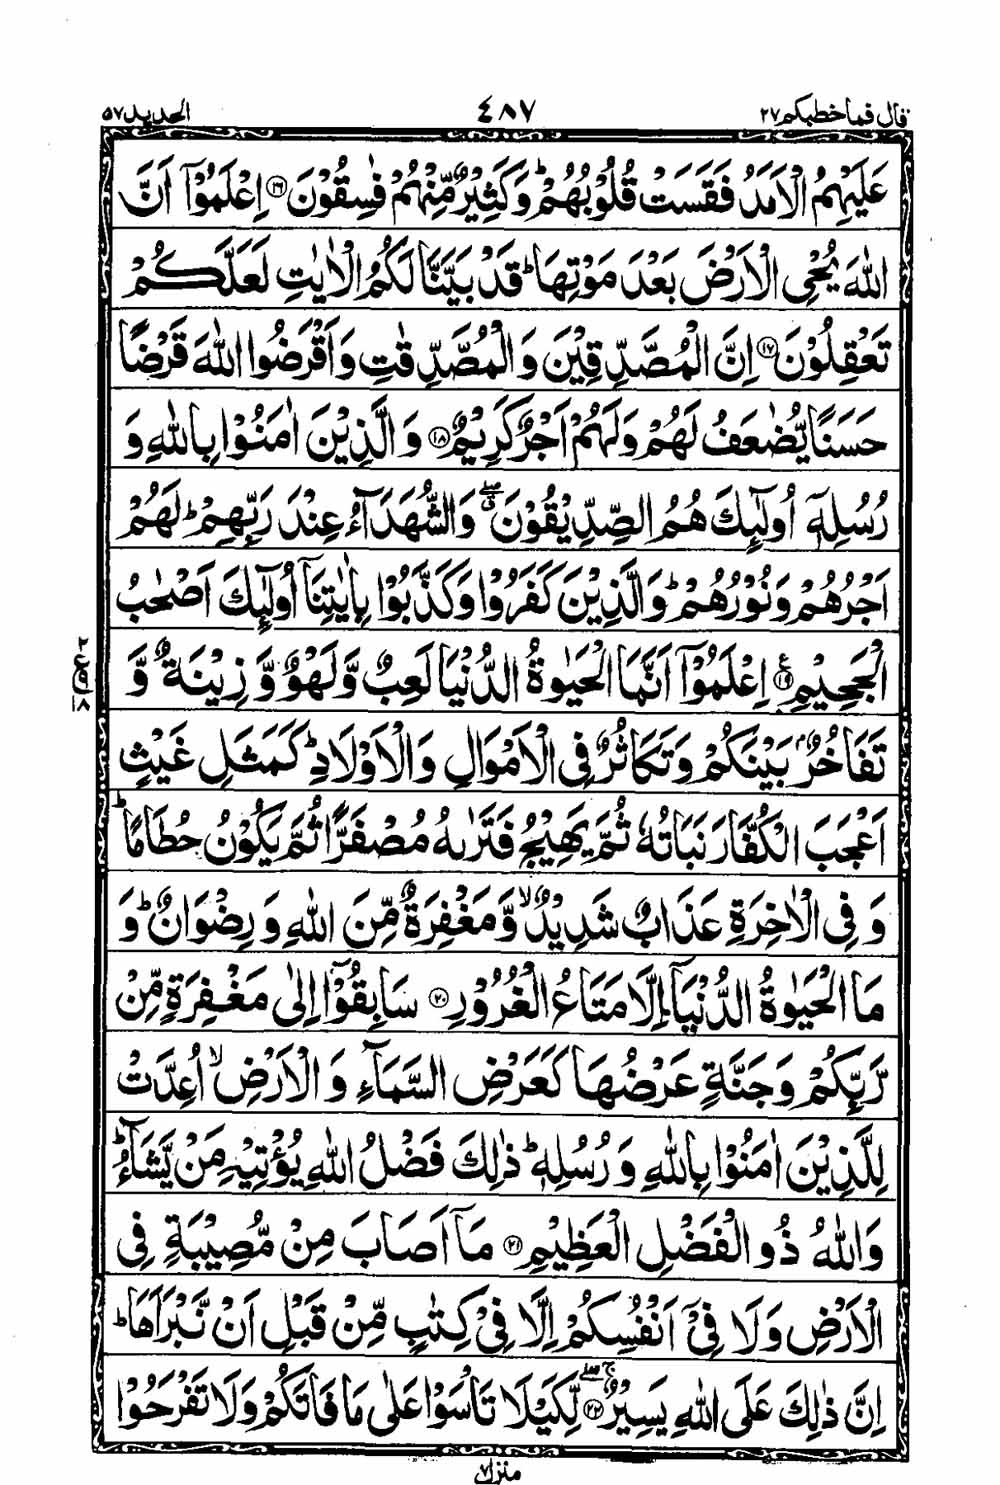 قال فما خطبكم ٢٧ ٤٨٧ الحديد ٥٧
عَلَيْهِمُ الْاَمَدُ فَقَسَتْ قُلُوْبُهُمْ ؕ وَكَثِيْرٌ مِّنْهُمْ فٰسِقُوْنَ ۝۱۶ اِعْلَمُوْۤا اَنَّ
اللّٰهَ يُحْيِ الْاَرْضَ بَعْدَ مَوْتِهَا ؕ قَدْ بَيَّنَّا لَكُمُ الْاٰيٰتِ لَعَلَّكُمْ
تَعْقِلُوْنَ ۝۱۷ اِنَّ الْمُصَّدِّقِيْنَ وَالْمُصَّدِّقٰتِ وَاَقْرَضُوا اللّٰهَ قَرْضًا
حَسَنًا يُّضٰعَفُ لَهُمْ وَلَهُمْ اَجْرٌ كَرِيْمٌ ۝۱۸ وَالَّذِيْنَ اٰمَنُوْا بِاللّٰهِ وَ
رُسُلِهٖۤ اُولٰٓئِكَ هُمُ الصِّدِّيْقُوْنَ ۖۗ وَالشُّهَدَآءُ عِنْدَ رَبِّهِمْ ؕ لَهُمْ
اَجْرُهُمْ وَنُوْرُهُمْ ؕ وَالَّذِيْنَ كَفَرُوْا وَكَذَّبُوْا بِاٰيٰتِنَاۤ اُولٰٓئِكَ اَصْحٰبُ
الْجَحِيْمِ ۝۱۹ اِعْلَمُوْۤا اَنَّمَا الْحَيٰوةُ الدُّنْيَا لَعِبٌ وَّلَهْوٌ وَّ زِيْنَةٌ وَّ
تَفَاخُرٌۢ بَيْنَكُمْ وَتَكَاثُرٌ فِى الْاَمْوَالِ وَالْاَوْلَادِ ؕ كَمَثَلِ غَيْثٍ
اَعْجَبَ الْكُفَّارَ نَبَاتُهٗ ثُمَّ يَهِيْجُ فَتَرٰىهُ مُصْفَرًّا ثُمَّ يَكُوْنُ حُطَامًا ؕ
وَفِى الْاٰخِرَةِ عَذَابٌ شَدِيْدٌ ۙ وَّمَغْفِرَةٌ مِّنَ اللّٰهِ وَرِضْوَانٌ ؕ وَ
مَا الْحَيٰوةُ الدُّنْيَاۤ اِلَّا مَتَاعُ الْغُرُوْرِ ۝۲۰ سَابِقُوْۤا اِلٰى مَغْفِرَةٍ مِّنْ
رَّبِّكُمْ وَجَنَّةٍ عَرْضُهَا كَعَرْضِ السَّمَآءِ وَالْاَرْضِ ۙ اُعِدَّتْ
لِلَّذِيْنَ اٰمَنُوْا بِاللّٰهِ وَرُسُلِهٖ ؕ ذٰلِكَ فَضْلُ اللّٰهِ يُؤْتِيْهِ مَنْ يَّشَآءُ ؕ
وَاللّٰهُ ذُو الْفَضْلِ الْعَظِيْمِ ۝۲۱ مَاۤ اَصَابَ مِنْ مُّصِيْبَةٍ فِى
الْاَرْضِ وَلَا فِىْۤ اَنْفُسِكُمْ اِلَّا فِىْ كِتٰبٍ مِّنْ قَبْلِ اَنْ نَّبْرَاَهَا ؕ
اِنَّ ذٰلِكَ عَلَى اللّٰهِ يَسِيْرٌ ۝۲۲ لِّكَيْلَا تَاْسَوْا عَلٰى مَا فَاتَكُمْ وَلَا تَفْرَحُوْا
منزل ٧